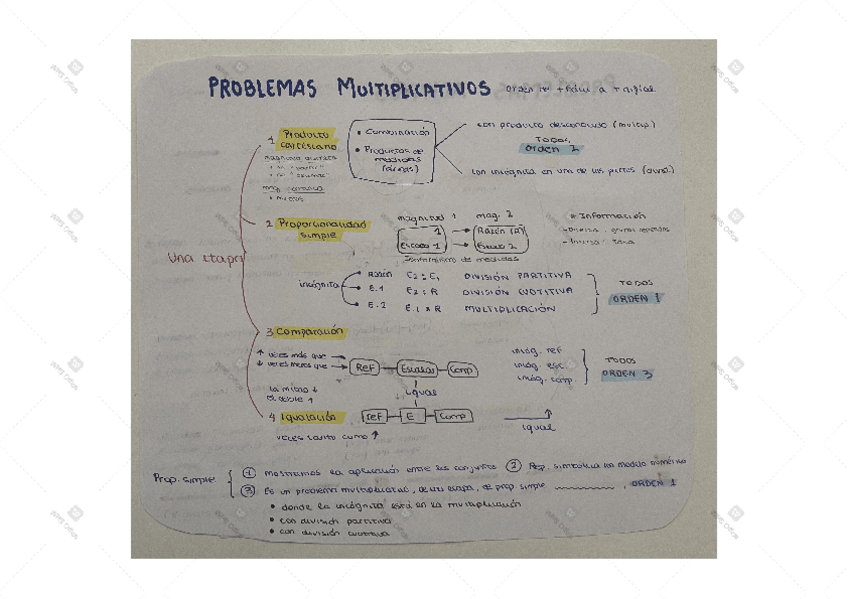 PROBLEMAS MULTIPLICATIVOS orden de
1 Producto cartesiano
• Combinación
• Productos de medidas (áreas)
con producto desconocido (multip.)
TODOS
orden 2
con incógnita en una de las partes (divis.)
Una etapa
2 Proporcionalidad simple
magnitud 1 mag. 2
1 → Razón (R)
Escalar 1 →
Información
incógnita
Razón E2 : E1 DIVISIÓN PARTITIVA
E.1 E2 : R DIVISIÓN CUOTITIVA
E.2 E.1 x R MULTIPLICACIÓN
TODOS
ORDEN 1
3 Comparación
↑ veces más que
↓ veces menos que
Ref Escalar Comp
incóg. ref
incóg. esc
incóg. comp
TODOS
ORDEN 3
la mitad ↓
el doble ↑
igual
4 Igualación
ref E Comp
igual
veces tanto como ↑
Prop. simple
① mostramos la aplicación entre los conjuntos ② Rep. simbólica en modelo numérico
③ Es un problema multiplicativo, de una etapa, de prop simple , ORDEN 1
• donde la incógnita está en la multiplicación
• con división partitiva
• con división cuotitiva
WPS Office